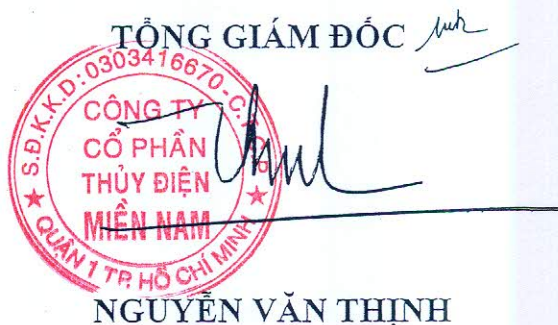 TỔNG GIÁM ĐỐC
S.Đ.K.K.D:0303416670-C.T.C.P
CÔNG TY
CỔ PHẦN
THỦY ĐIỆN
MIỀN NAM
QUẬN 1 TP. HỒ CHÍ MINH
NGUYỄN VĂN THỊNH